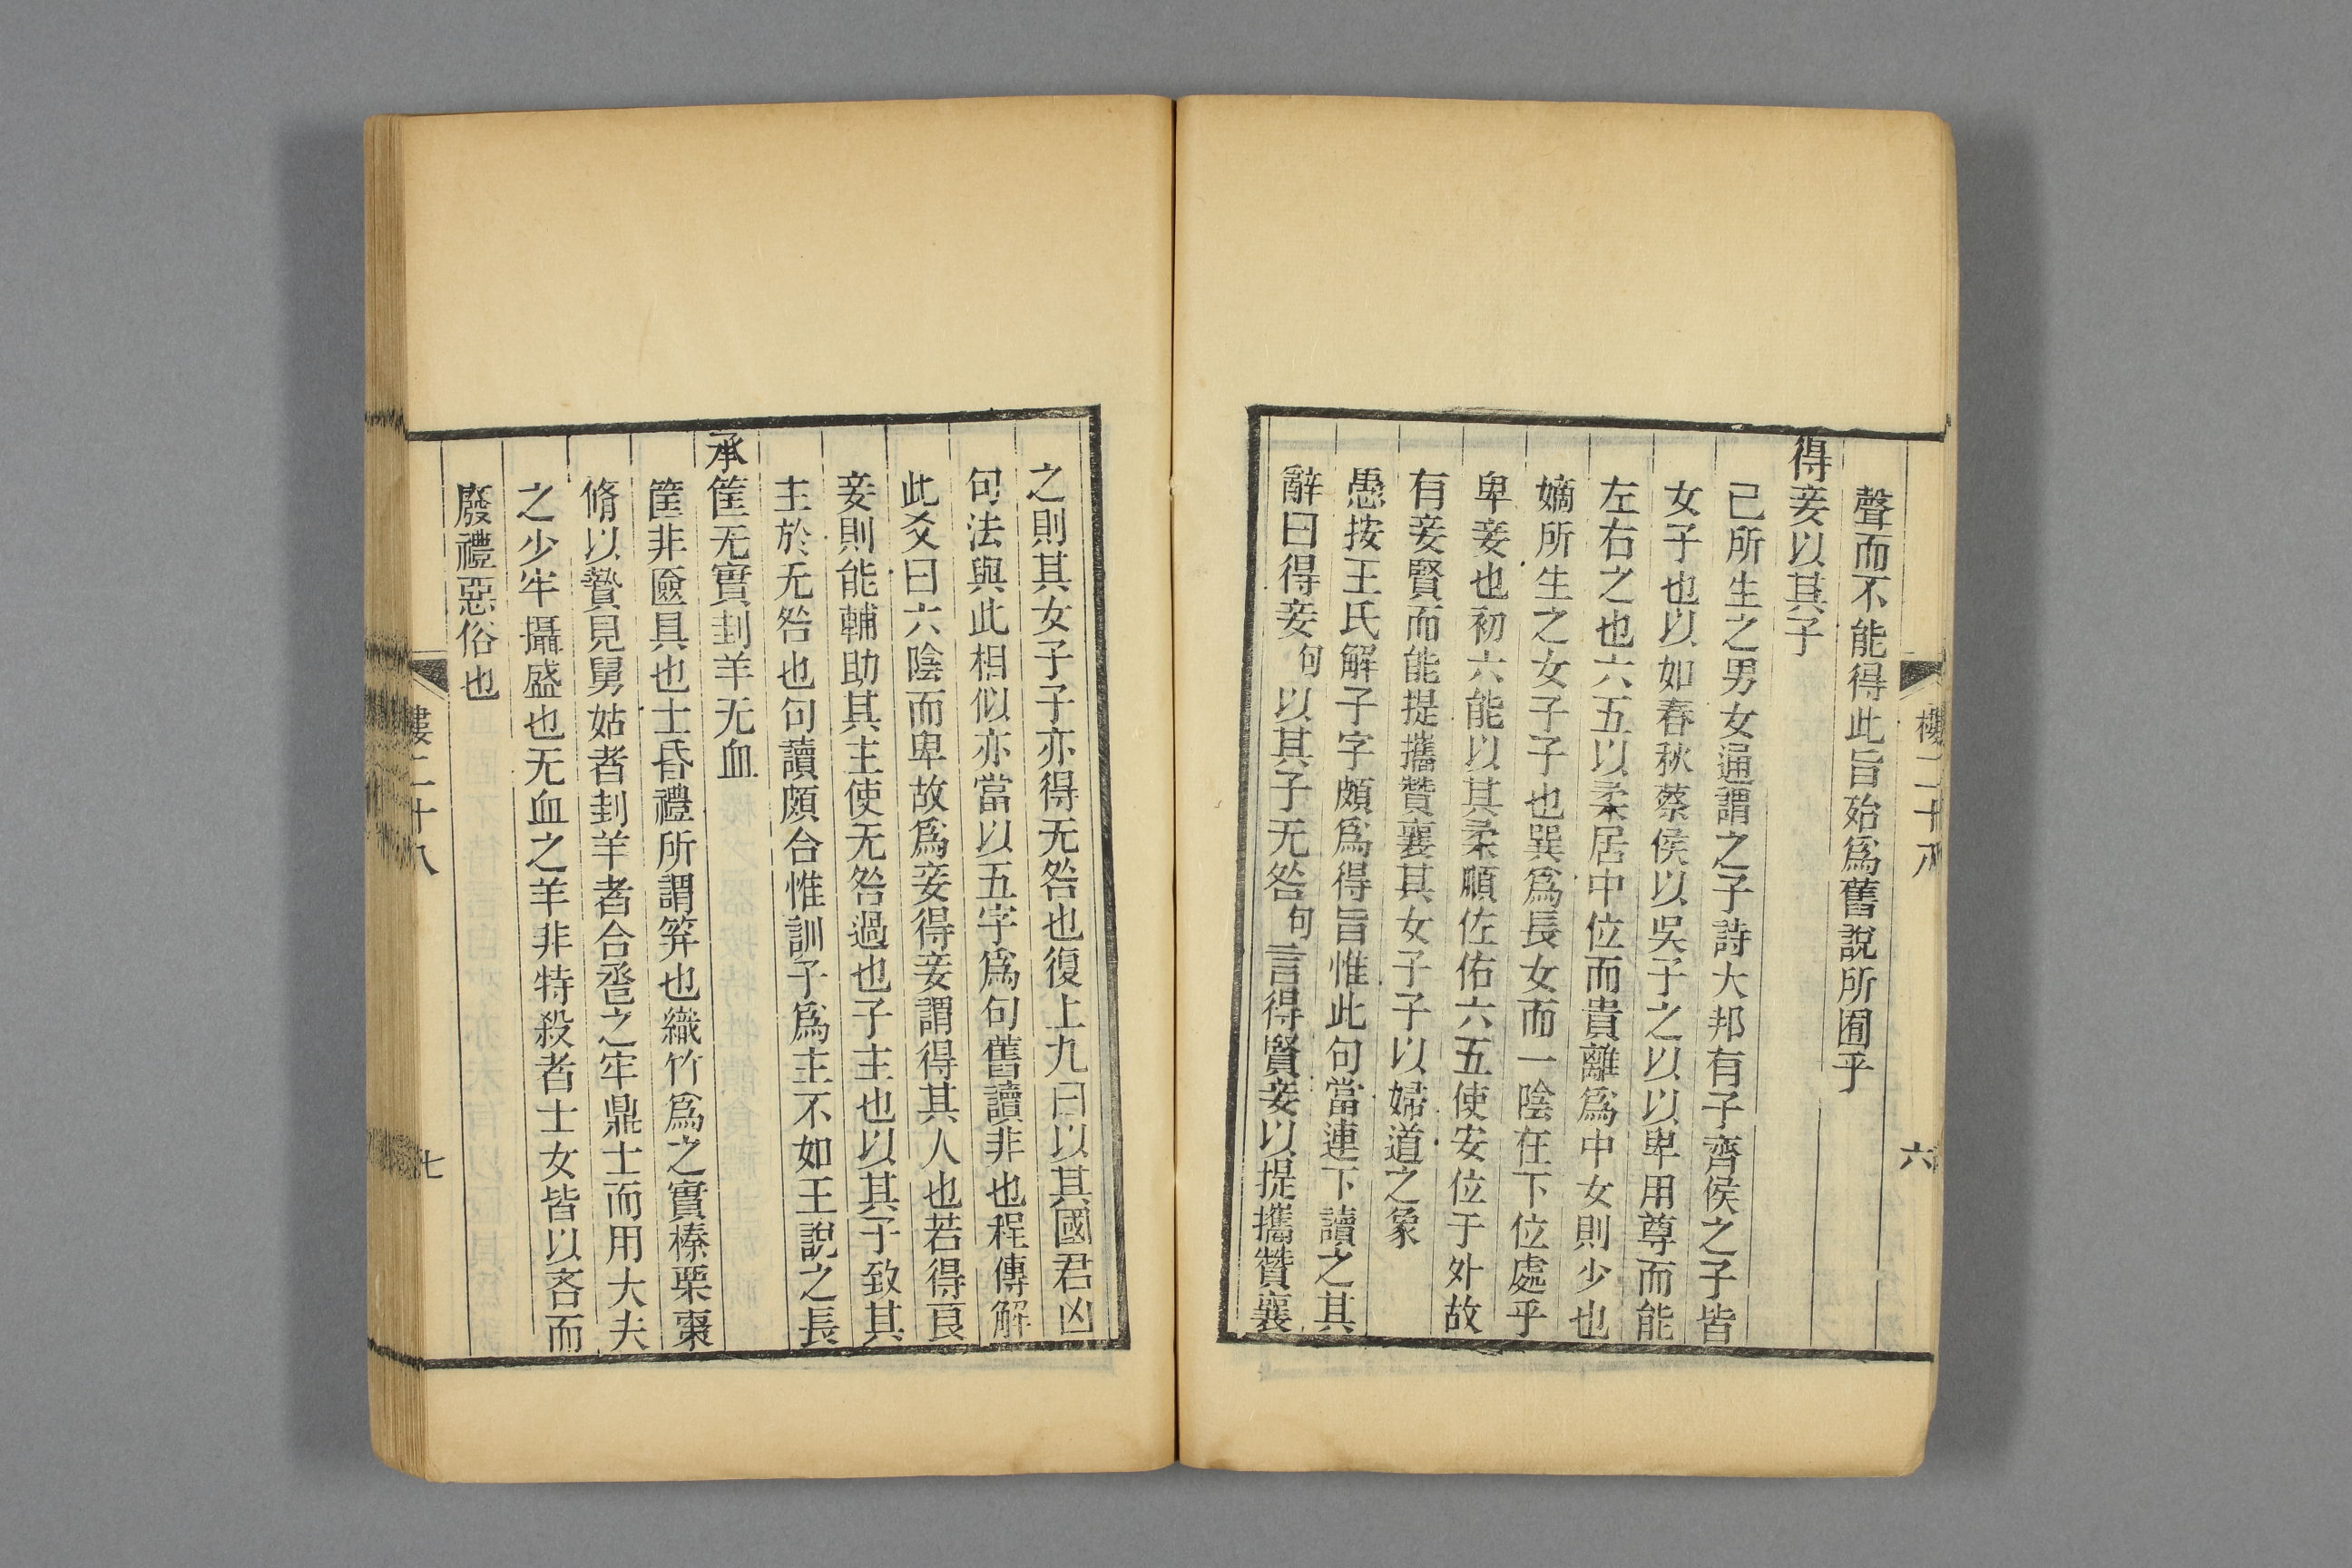 聲而不能得此旨殆爲舊說所囿乎
得妾以其子
己所生之男女通謂之子詩大邦有子齊侯之子皆
女子也以如春秋蔡侯以吳子之以以卑用尊而能
左右之也六五以柔居中位而貴離爲中女則少也
嫡所生之女子子也巽爲長女而一陰在下位處乎
卑妾也初六能以其柔順佐佑六五使安位于外故
有妾賢而能提攜贊襄其女子子以婦道之象
愚按王氏解子字頗爲得旨惟此句當連下讀之其
辭曰得妾句以其子无咎句言得賢妾以提攜贊襄
樓二十八
六
之則其女子子亦得无咎也復上九曰以其國君凶
句法與此相似亦當以五字爲句舊讀非也程傳解
此爻曰六陰而卑故爲妾得妾謂得其人也若得良
妾則能輔助其主使无咎過也子主也以其子致其
主於无咎也句讀頗合惟訓子爲主不如王說之長
承筐无實刲羊无血
筐非匳具也士昏禮所謂笲也織竹爲之實榛栗棗
脩以贄見舅姑者刲羊者合巹之牢鼎士而用大夫
之少牢攝盛也无血之羊非特殺者士女皆以吝而
廢禮惡俗也
樓二十八
七